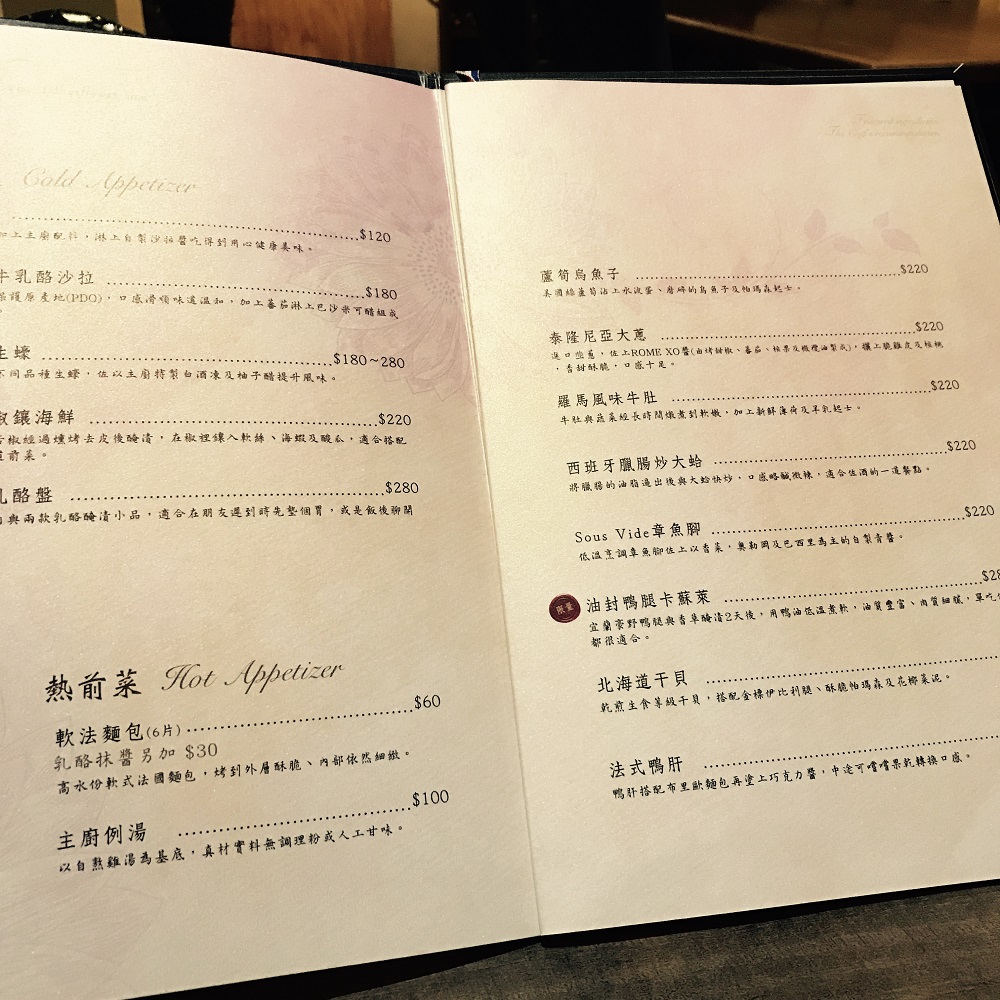 Cold Appetizer
$120
加上主廚配料，淋上自製沙拉醬吃得到用心健康美味。
牛乳酪沙拉 $180
保護原產地(PDO)，口感滑順味道溫和，加上蕃茄淋上巴沙米可醋組成
生蠔 $180~280
不同品種生蠔，佐以主廚特製白酒凍及柚子醋提升風味。
椒鑲海鮮 $220
椒經過爐烤去皮後醃漬，在椒裡鑲入軟絲、海蝦及酸瓜，適合搭配
前菜。
乳酪盤 $280
與兩款乳酪醃漬小品，適合在朋友遲到時先墊個胃，或是飯後聊開
熱前菜 Hot Appetizer
軟法麵包(6片) $60
乳酪抹醬另加 $30
高水份軟式法國麵包，烤到外層酥脆、內部依然細緻。
主廚例湯 $100
以自熬雞湯為基底，真材實料無調理粉或人工甘味。
蘆筍烏魚子 $220
美國綠蘆筍沾上水波蛋、磨碎的烏魚子及帕瑪森起士。
泰隆尼亞大蔥 $220
進口蔥，佐上ROME XO醬(由烤甜椒、蕃茄、核果及橄欖油製成)，鑲上脆雞皮及核桃
，香甜酥脆，口感十足。
羅馬風味牛肚 $220
牛肚與蔬菜經長時間燉煮到軟嫩，加上新鮮薄荷及羊乳起士。
西班牙臘腸炒大蛤 $220
將臘腸的油脂逼出後與大蛤快炒，口感略鹹微辣，適合佐酒的一道餐點。
Sous Vide章魚腳 $220
低溫烹調章魚腳佐上以香菜，奧勒岡及巴西里為主的自製青醬。
限量 油封鴨腿卡蘇萊 $28
宜蘭豪野鴨腿與香草醃漬2天後，用鴨油低溫煮軟，油質豐富、肉質細膩，單吃
都很適合。
北海道干貝
乾煎生食等級干貝，搭配金標伊比利腿、酥脆帕瑪森及花椰菜泥。
法式鴨肝
鴨肝搭配布里歐麵包再塗上巧克力醬，中途可嚐嚐果乾轉換口感。